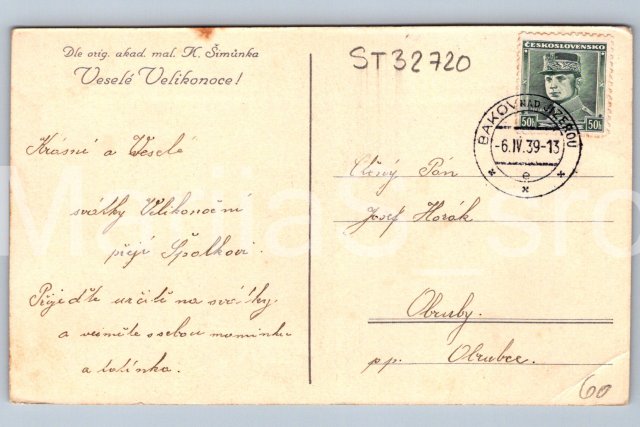 Dle orig. akad. mal. K. Šimůnka
Veselé Velikonoce!
ST 32720
ČESKOSLOVENSKO
50h 50h
BAKOV NAD JIZEROU
-6.IV.39-13
e
Krásné a Veselé
svátky Velikonoční
přejí Špolkovi.
Přijeďte určitě na svátky
a vezměte ssebou maminku
a tatínka.
Ctěný Pán
Josef Horák
Obruby.
pp. Obrubce.
60